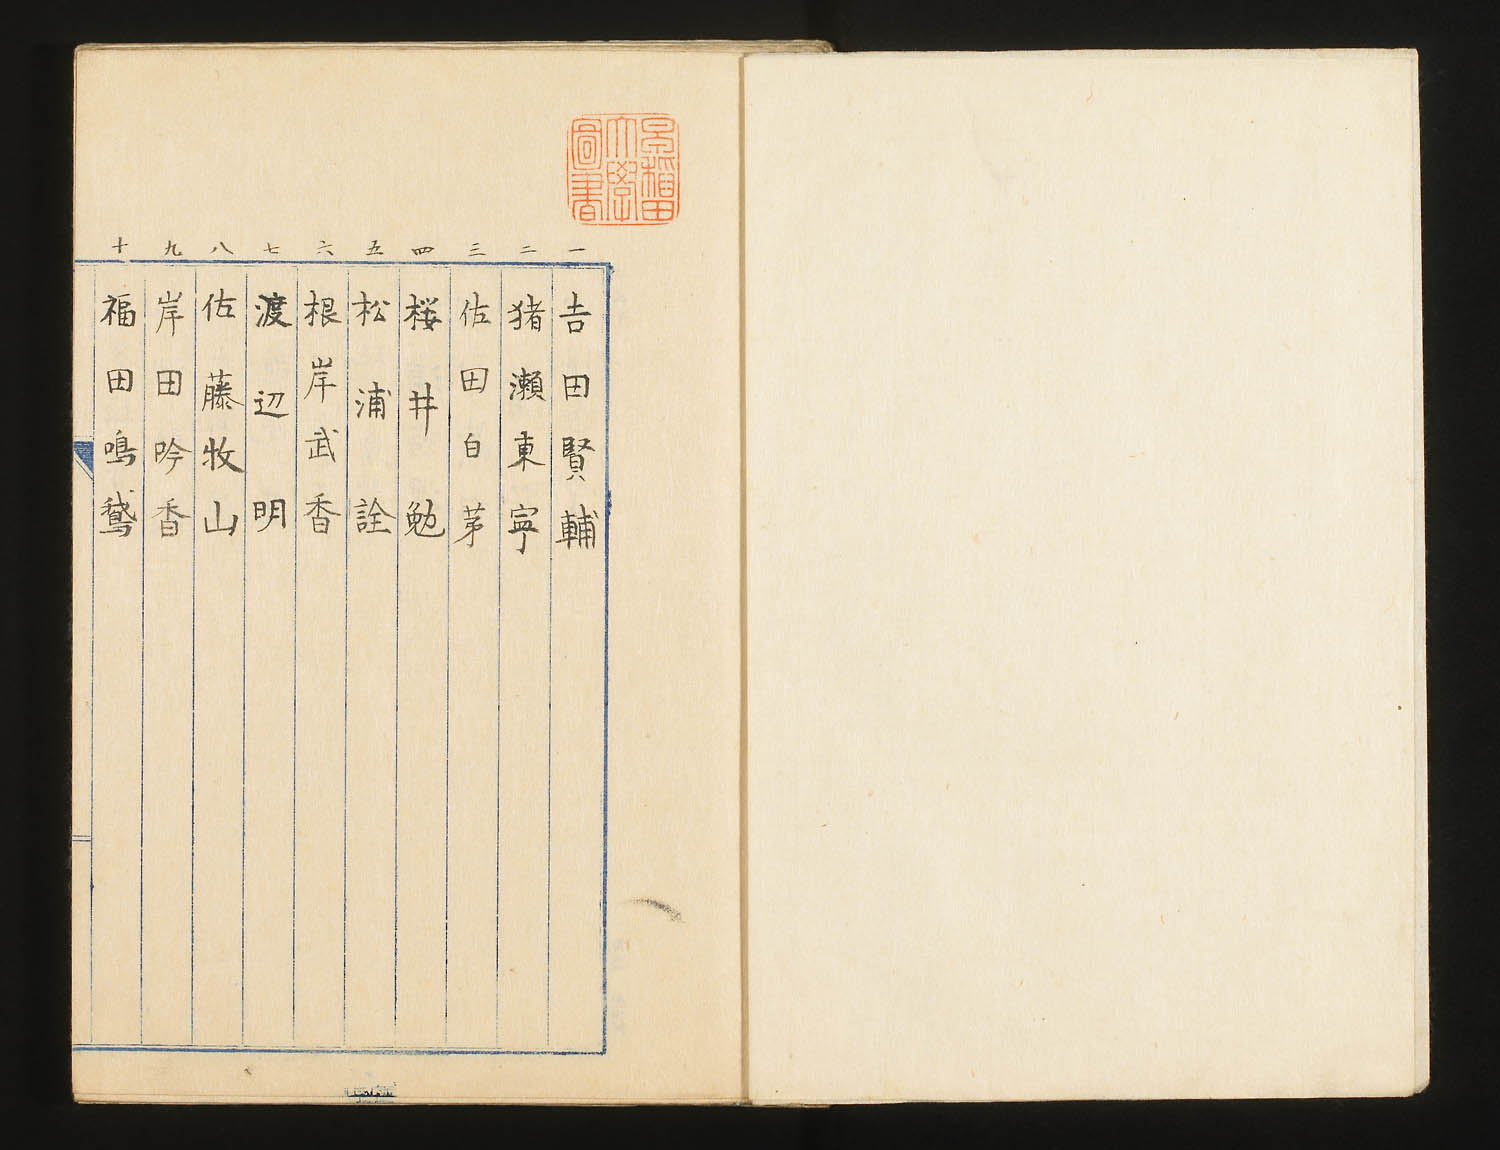 早稲田
大學
圖書
一 吉田賢輔
二 猪瀬東寧
三 佐田白茅
四 桜井勉
五 松浦詮
六 根岸武香
七 渡辺明
八 佐藤牧山
九 岸田吟香
十 福田鳴鵞